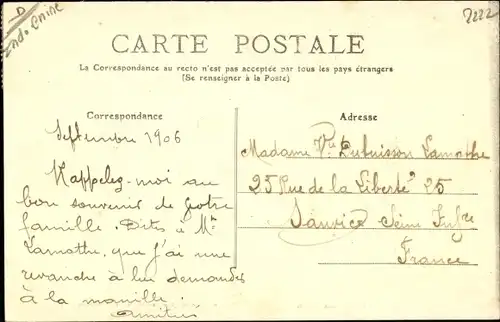 D
Indo-Chine
2222
CARTE POSTALE
La Correspondance au recto n'est pas acceptée par tous les pays étrangers
(Se renseigner à la Poste)
Correspondance
Adresse
Septembre 1906
Rappelez-moi au
bon souvenir de votre
famille. Dites à Mr
Lamothe, que j'ai une
revanche à lui demander
à la manille.
Amitiés
Madame Vve Dubuisson Lamothe
25 Rue de la Liberté 25
Sanvic Seine Infre
France